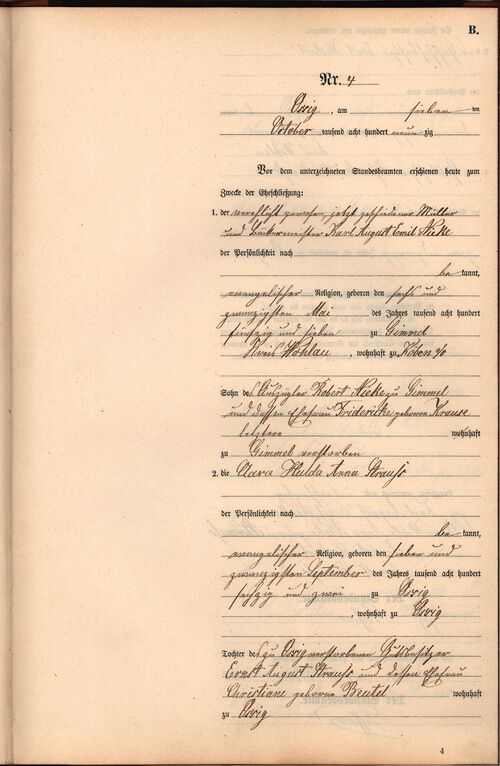 B.
Nr. 4
Ossig, am sieben ten
October tausend acht hundert neunzig
Vor dem unterzeichneten Standesbeamten erschienen heute zum
Zwecke der Eheschließung:
1. der verehlicht gewesene, jetzt geschiedener Müller
und Bäckermeister Karl August Emil Nieke
der Persönlichkeit nach
bekannt,
evangelischer Religion, geboren den sechs und
zwanzigsten Mai des Jahres tausend acht hundert
fünfzig und sieben zu Gimmel
Kreis Wohlau, wohnhaft zu Köben a/o
Sohn des Auszügler Robert Nieke zu Gimmel
und dessen Ehefrau Fridericke geborene Krause
letztere wohnhaft
zu Gimmel verstorben
2. die Clara Hulda Anna Strauss
der Persönlichkeit nach
bekannt,
evangelischer Religion, geboren den sieben und
zwanzigsten September des Jahres tausend acht hundert
sechzig und zwei zu Ossig
, wohnhaft zu Ossig
Tochter des zu Ossig verstorbenen Gutsbesitzer
Ernst August Strauss und dessen Ehefrau
Christiane geborne Beutel wohnhaft
zu Ossig
4